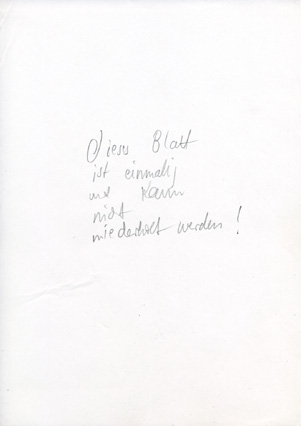 Dieses Blatt
ist einmalig
und kann
nicht
wiederholt werden!